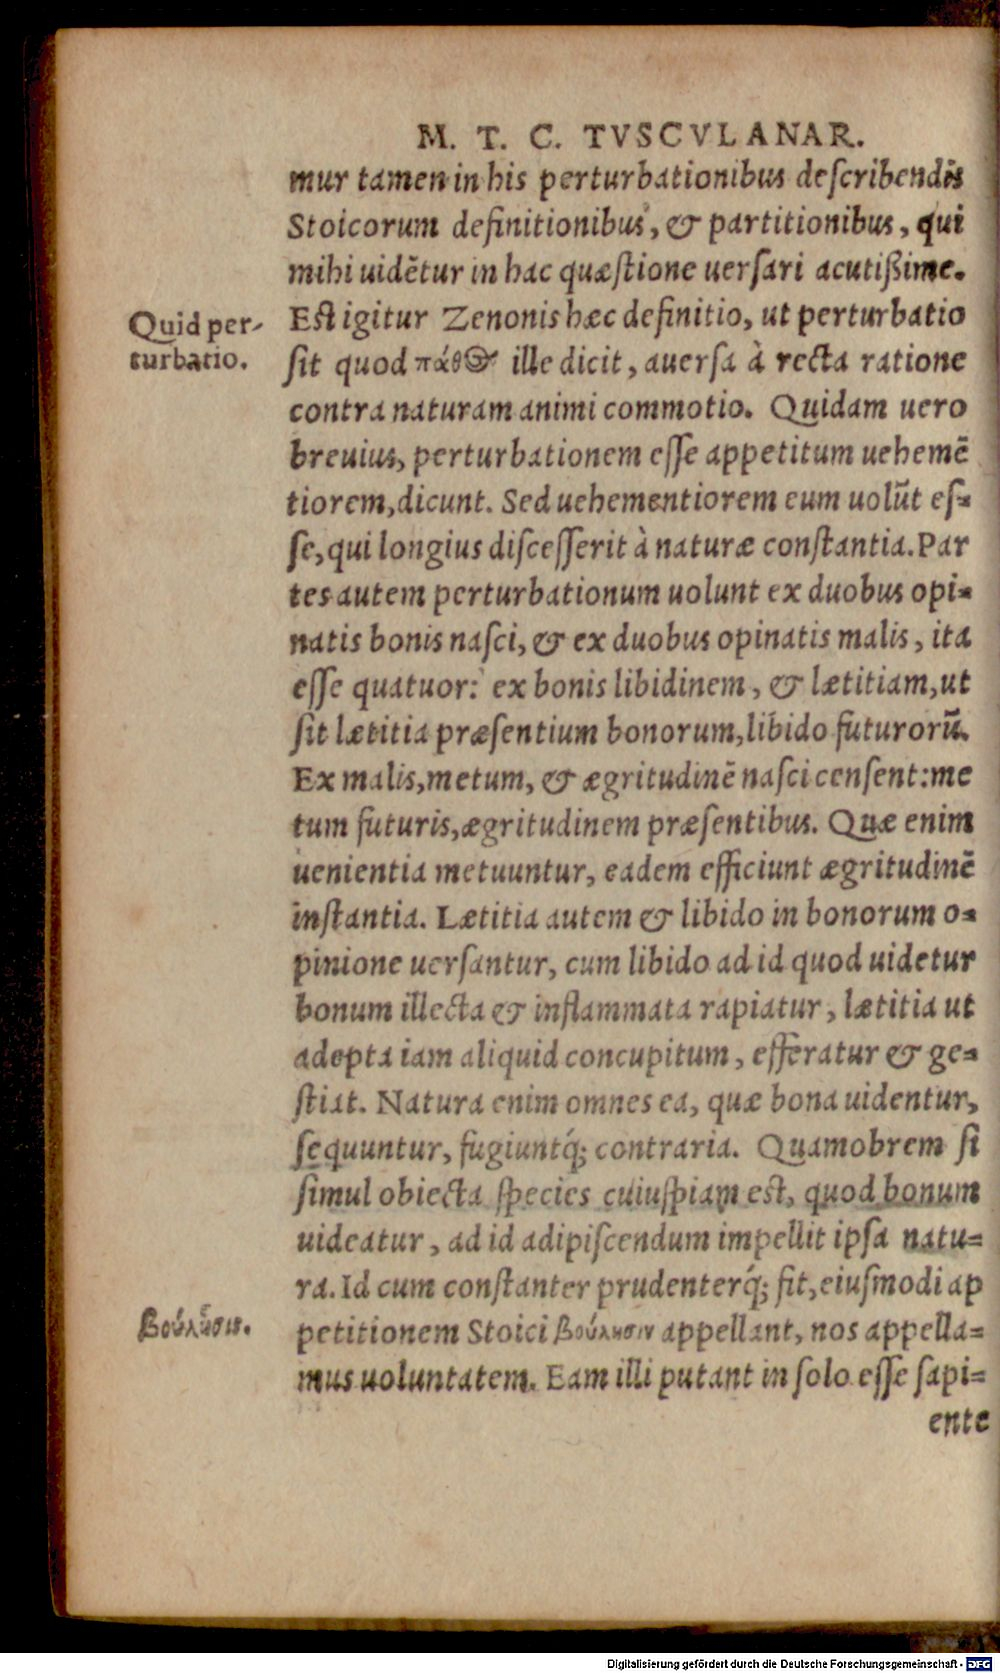 M. T. C. TVSCVLANAR.
mur tamen in his perturbationibus deſcribendis
Stoicorum definitionibus, & partitionibus, qui
mihi uidẽtur in hac quæſtione uerſari acutißime.
Quid per-
turbatio.
Eſt igitur Zenonis hæc definitio, ut perturbatio
ſit quod πάθος ille dicit, auerſa à recta ratione
contra naturam animi commotio. Quidam uero
breuius, perturbationem eſſe appetitum uehemẽ
tiorem, dicunt. Sed uehementiorem eum uolũt eſ-
ſe, qui longius diſceſſerit à naturæ conſtantia. Par
tes autem perturbationum uolunt ex duobus opi-
natis bonis naſci, & ex duobus opinatis malis, ita
eſſe quatuor: ex bonis libidinem, & lætitiam, ut
ſit lætitia præſentium bonorum, libido futurorũ.
Ex malis, metum, & ægritudinẽ naſci cenſent: me
tum futuris, ægritudinem præſentibus. Quæ enim
uenientia metuuntur, eadem efficiunt ægritudinẽ
inſtantia. Lætitia autem & libido in bonorum o-
pinione uerſantur, cum libido ad id quod uidetur
bonum illecta & inflammata rapiatur, lætitia ut
adepta iam aliquid concupitum, efferatur & ge-
ſtiat. Natura enim omnes ea, quæ bona uidentur,
ſequuntur, fugiuntq́; contraria. Quamobrem ſi
ſimul obiecta ſpecies cuiuſpiam eſt, quod bonum
uideatur, ad id adipiſcendum impellit ipſa natu-
ra. Id cum conſtanter prudenterq́; fit, eiuſmodi ap
βούλησις.
petitionem Stoici βούλησιν appellant, nos appella-
mus uoluntatem. Eam illi putant in ſolo eſſe ſapi-
ente
Digitalisierung gefördert durch die Deutsche Forschungsgemeinschaft - DFG